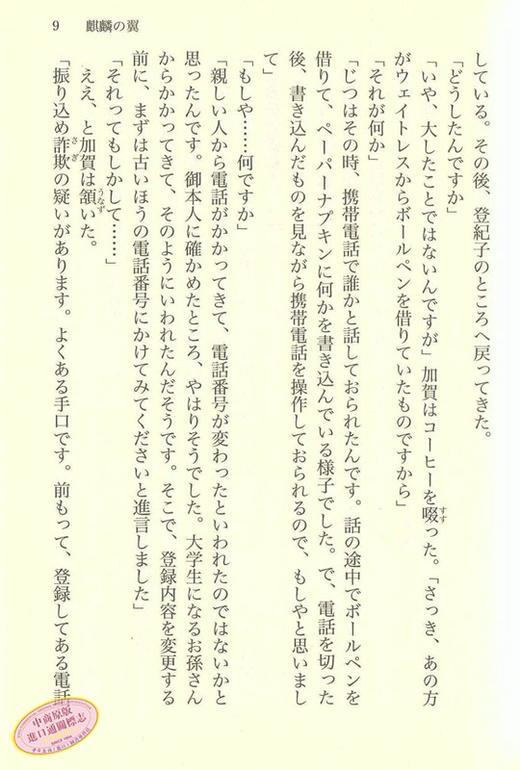 9　麒麟の翼
している。その後、登紀子のところへ戻ってきた。
「どうしたんですか」
「いや、大したことではないんですが」加賀はコーヒーを啜った。「さっき、あの方
すす
がウェイトレスからボールペンを借りていたものですから」
「それが何か」
「じつはその時、携帯電話で誰かと話しておられたんです。話の途中でボールペンを
借りて、ペーパーナプキンに何かを書き込んでいる様子でした。で、電話を切った
後、書き込んだものを見ながら携帯電話を操作しておられるので、もしやと思いまし
て」
「もしや……何ですか」
「親しい人から電話がかかってきて、電話番号が変わったといわれたのではないかと
思ったんです。御本人に確かめたところ、やはりそうでした。大学生になるお孫さん
からかかってきて、そのようにいわれたんだそうです。そこで、登録内容を変更する
前に、まずは古いほうの電話番号にかけてみてくださいと進言しました」
「それってもしかして……」
ええ、と加賀は頷いた。
うなず
「振り込め詐欺の疑いがあります。よくある手口です。前もって、登録してある電話
さぎ
中商原版
進口通關標志